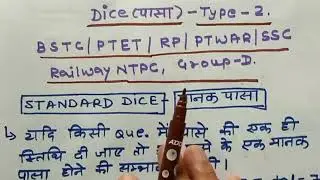 Dice (पासा) - Type-2.
BSTC/PTET/RP/PTWAR/SSC
Railway NTPC, Group-D.
STANDARD DICE - मानक पासा
↳ यदि किसी Que. में पासे की एक ही
स्तिथि दी जाए तो के एक मानक
पासा होने की